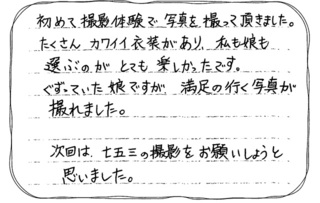 初めて撮影体験で写真を撮って頂きました。
たくさんカワイイ衣装があり、私も娘も
選ぶのがとても楽しかったです。
ぐずっていた娘ですが、満足の行く写真が
撮れました。
次回は、七五三の撮影をお願いしようと
思いました。